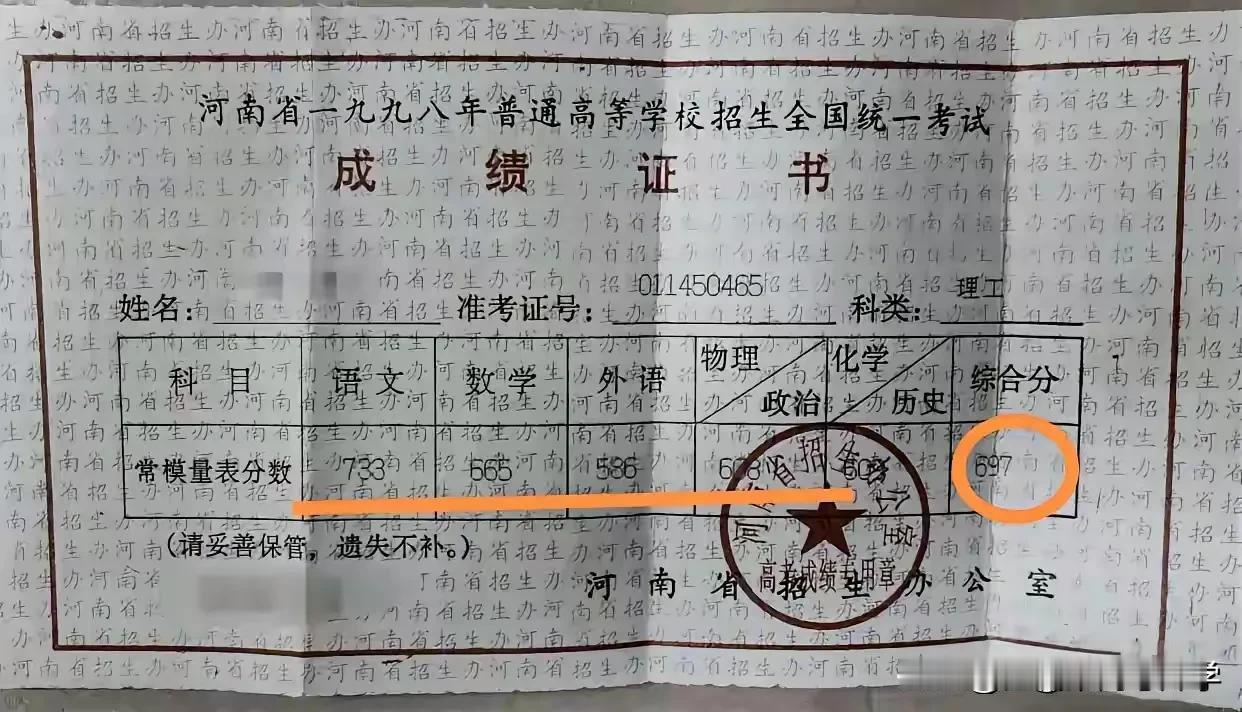 河南省一九九八年普通高等学校招生全国统一考试
成绩证书
姓名： 准考证号：011450465 科类：理工
科目 语文 数学 外语 物理 政治 化学 历史 综合分
常模量表分数 733 665 586 697
（请妥善保管，遗失不补。）
河南省招生办公室
高考成绩专用章